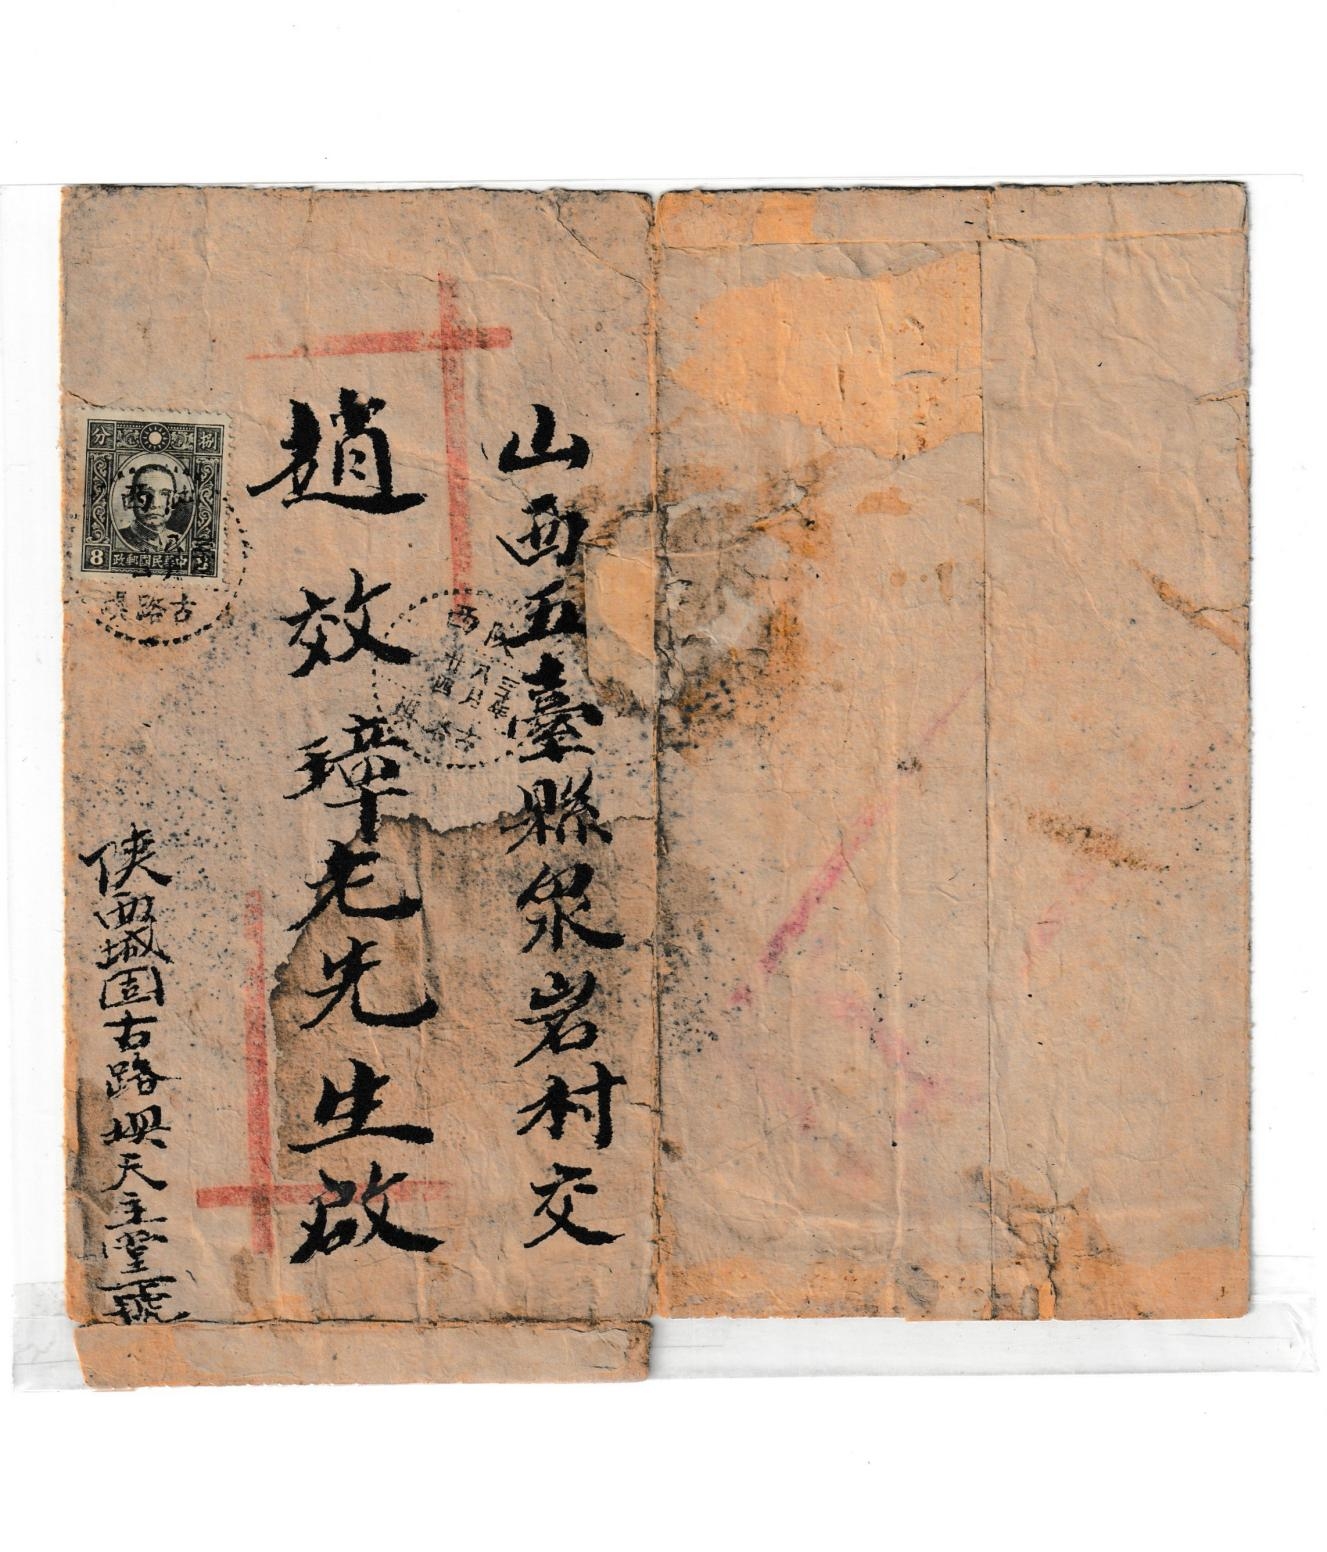 山西五臺縣泉岩村交
趙效璋老先生啟
陝西城固古路垻天主堂一號
捌 分
8 政郵國民華中
西
古路垻
西
三十年
八月
廿四
古